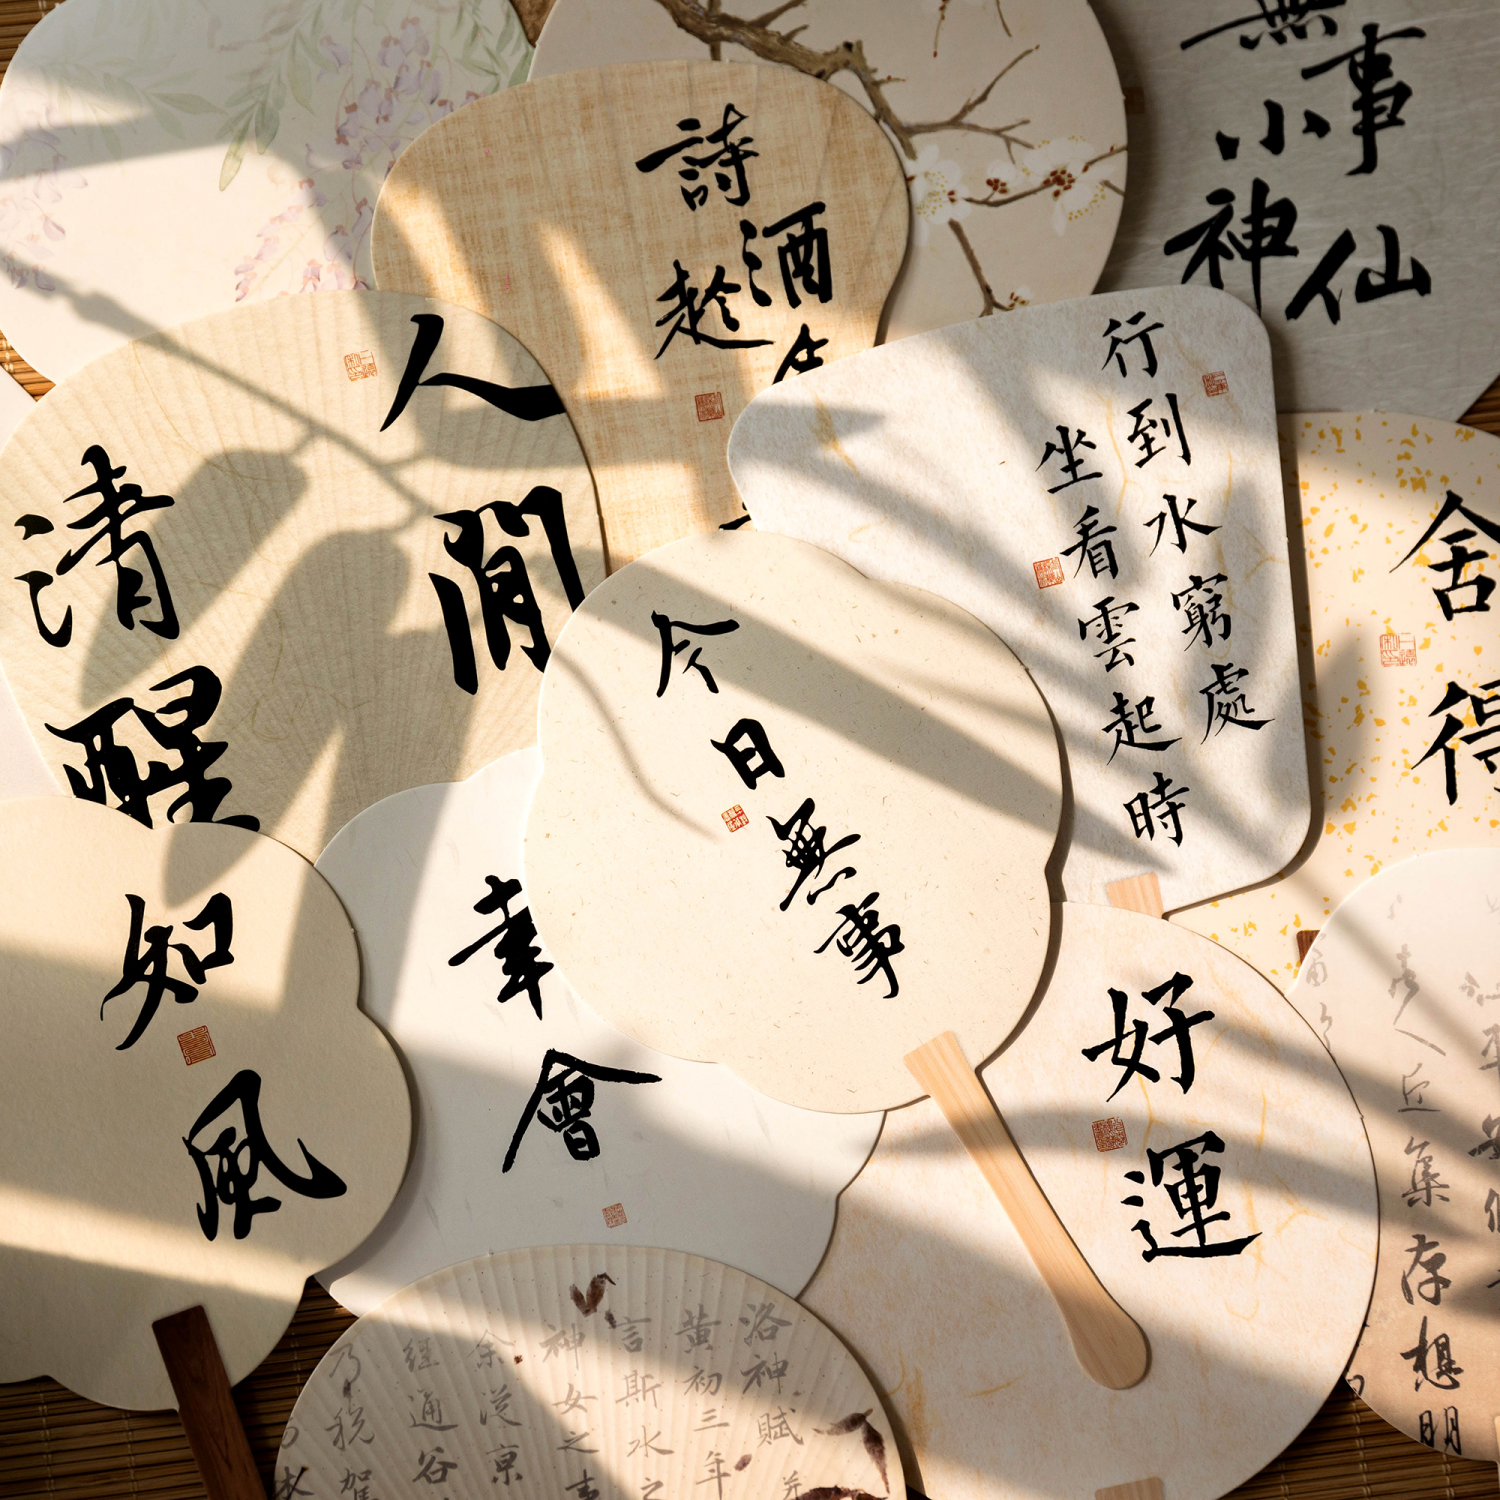 無事
小神仙
詩酒
趁
人間
清醒
行到水窮處
坐看雲起時
舍得
今日無事
知風
幸會
好運
洛神賦
黃初三年
言斯水之
神女之事
余從京
經通谷
乃税駕
丘集存想明